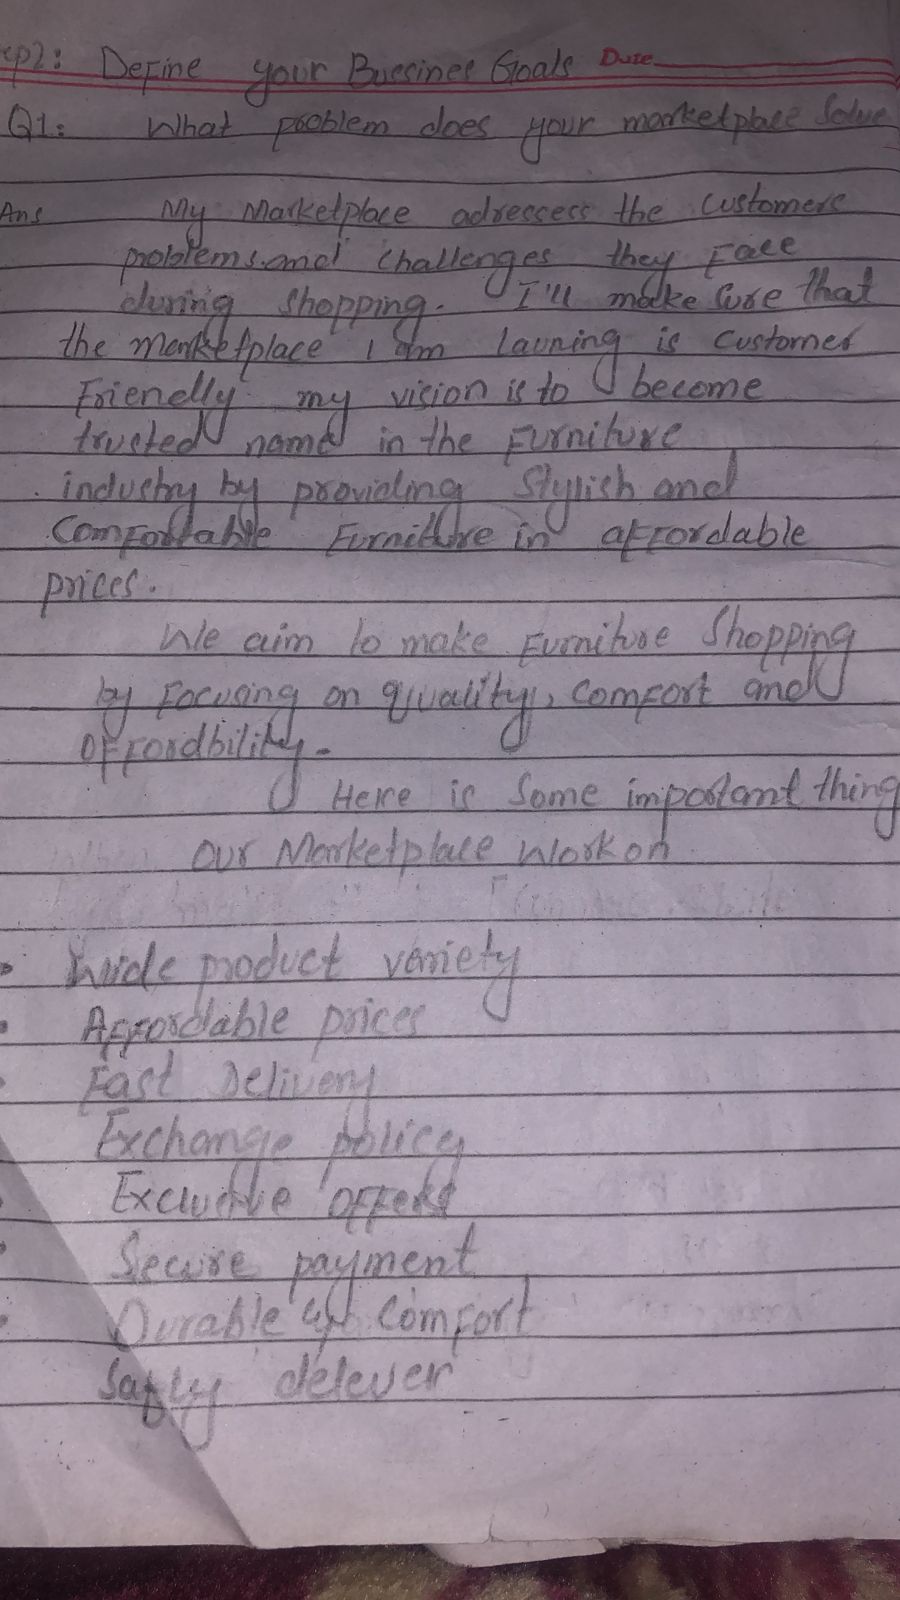 ep2: Define your Bussines Goals Date
Q1: What problem does your marketplace Solve
Ans My Marketplace adressess the customers
problems and challenges they Face
during shopping. I'll make sure that
the marketplace I am launing is customer
Friendly my vision is to become
trusted name in the Furniture
industry by providing Stylish and
Comfortable Furniture in affordable
prices.
We aim to make Furniture Shopping
by Focusing on quality, comfort and
offordbility.
Here is Some important thing
our Marketplace work on
Wide product variety
Affordable prices
Fast Delivery
Exchange policy
Exclutive offers
Secure payment
Durable comfort
Safly delever